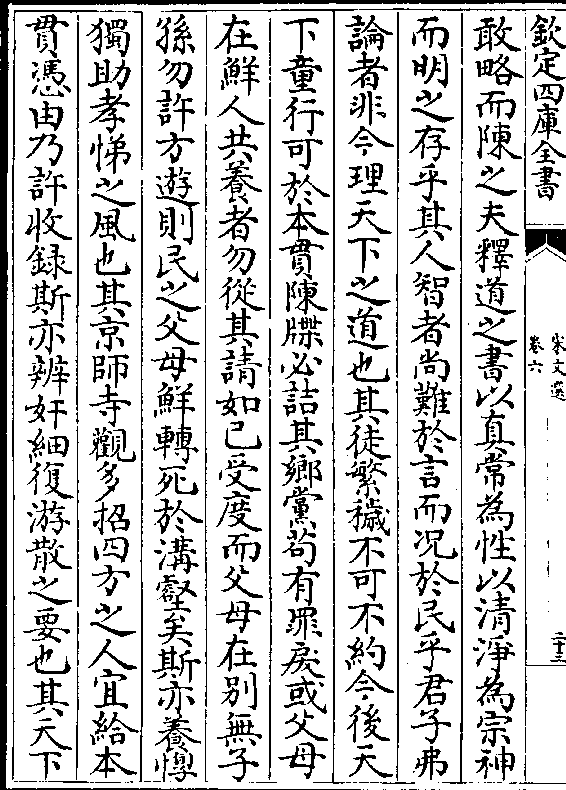 欽定四庫全書
宋文選
卷六
二十三
敢略而陳之夫釋道之書以真常為性以清淨為宗神
而明之存乎其人智者尚難於言而况於民乎君子弗
論者非今理天下之道也其徒繁穢不可不約今後天
下童行可於本貫陳牒必詰其鄉黨苟有罪戾或父母
在鮮人共養者勿從其請如已受度而父母在别無子
孫勿許方遊則民之父母鮮轉死於溝壑矣斯亦養惸
獨助孝悌之風也其京師寺觀多招四方之人宜給本
貫憑由乃許收録斯亦辨奸細復游散之要也其天下